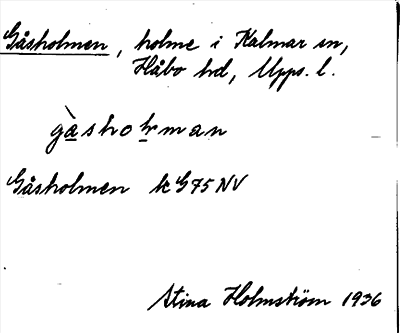 Gåsholmen, holme i Kalmar sn,
Håbo hd, Upps. l.
gàshoḷman
Gåsholmen k G75 NV
Stina Holmström 1936